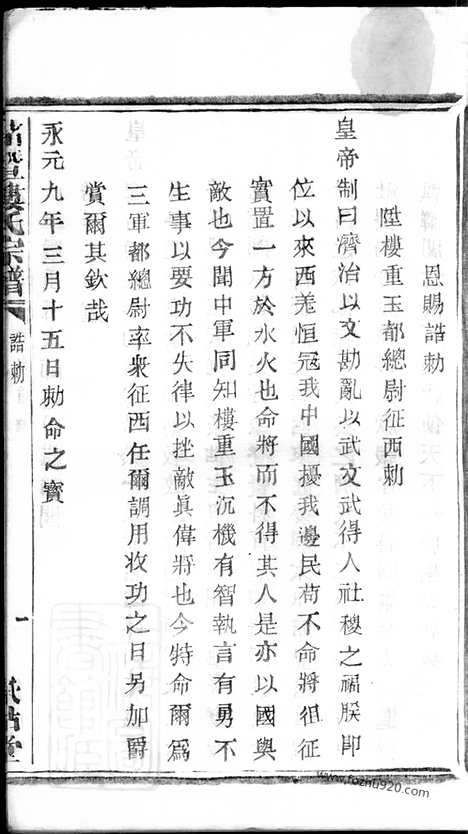 恩賜誥勅
陞樓重玉都總尉征西勅
皇帝制曰濟治以文勘亂以武文武得人社稷之福朕即
位以來西羗恒冦我中國擾我邊民苟不命將徂征
實置一方於水火也命將而不得其人是亦以國與
敵也今聞中軍同知樓重玉沉機有智執言有勇不
生事以要功不失律以挫敵眞偉將也今特命爾爲
三軍都總尉率衆征西任爾調用收功之日另加爵
賞爾其欽哉
永元九年三月十五日勅命之寳
樓氏宗譜
誥勅
一
www.fozhu920.com